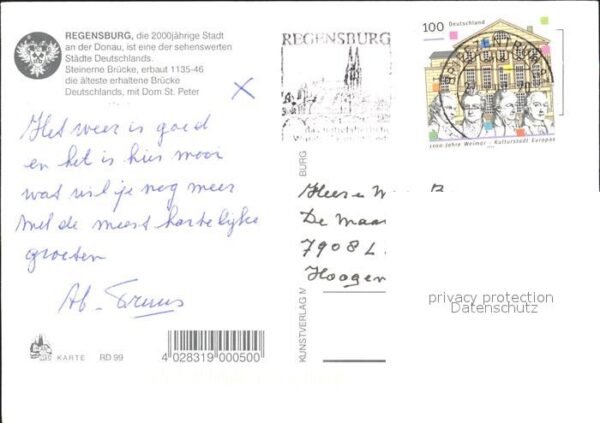 REGENSBURG, die 2000jährige Stadt
an der Donau, ist eine der sehenswerten
Städte Deutschlands.
Steinerne Brücke, erbaut 1135-46
die älteste erhaltene Brücke
Deutschlands, mit Dom St. Peter
Het weer is goed
en het is hier mooi
wat wil je nog meer
Met de meest hartelijke
groeten
KARTE RD 99
4 028319 000500
KUNSTVERLAG
BURG
REGENSBURG
100 Deutschland
BRIEFZENTRUM
1100 Jahre Weimar · Kulturstadt Europas
Heer e
De Maar
7908 L
Hoogen
privacy protection
Datenschutz